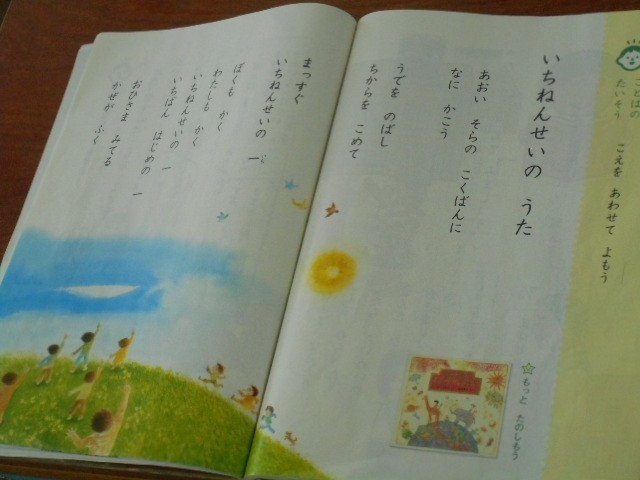 ことばの
たいそう
こえを　あわせて　よもう
いちねんせいの　うた
あおい　そらの　こくばんに
なに　かこう
うでを　のばし
ちからを　こめて
まっすぐ
いちねんせいの　一
ぼくも　かく
わたしも　かく
いちねんせいの　一
いちばん　はじめの　一
おひさま　みてる
かぜが　ふく
もっと　たのしもう